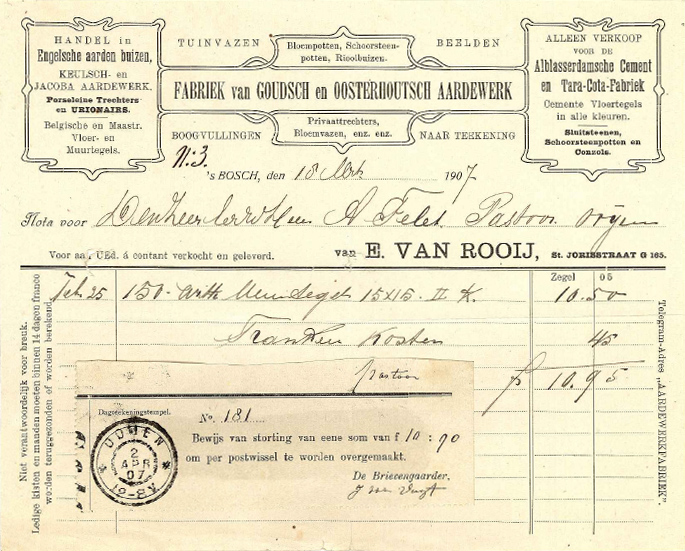 HANDEL in
Engelsche aarden buizen,
KEULSCH- en
JACOBA AARDEWERK.
Porseleine Trechters
en URIONAIRS.
Belgische en Maastr.
Vloer- en
Muurtegels.
TUINVAZEN
Bloempotten, Schoorsteen-
potten, Rioolbuizen.
BEELDEN
FABRIEK van GOUDSCH en OOSTERHOUTSCH AARDEWERK
Privaattrechters,
Bloemvazen, enz. enz.
BOOGVULLINGEN
NAAR TEEKENING
ALLEEN VERKOOP
VOOR DE
Alblasserdamsche Cement
en Tara-Cota-Fabriek
Cemente Vloertegels
in alle kleuren.
Sluitsteenen,
Schoorsteenpotten en
Consols.
N: 3.
's BOSCH, den 18 Mrt 1907
Nota voor Pastoor
Voor aan UEd. á contant verkocht en geleverd.
van E. VAN ROOIJ, St. JORISSTRAAT G 165.
Zegel 05
Feb 25 150 15x15 II K. 10.50
Kosten 45
f 10.95
Pastoor
Dagteekeningstempel.
No. 181
Bewijs van storting van eene som van f 10:90
om per postwissel te worden overgemaakt.
De Brievengaarder,
UDEN
2
APR
07
Niet verantwoordelijk voor breuk.
Ledige kisten en manden moeten binnen 14 dagen franco
worden teruggezonden of worden berekend.
Telegram-Adres „AARDEWERKFABRIEK".